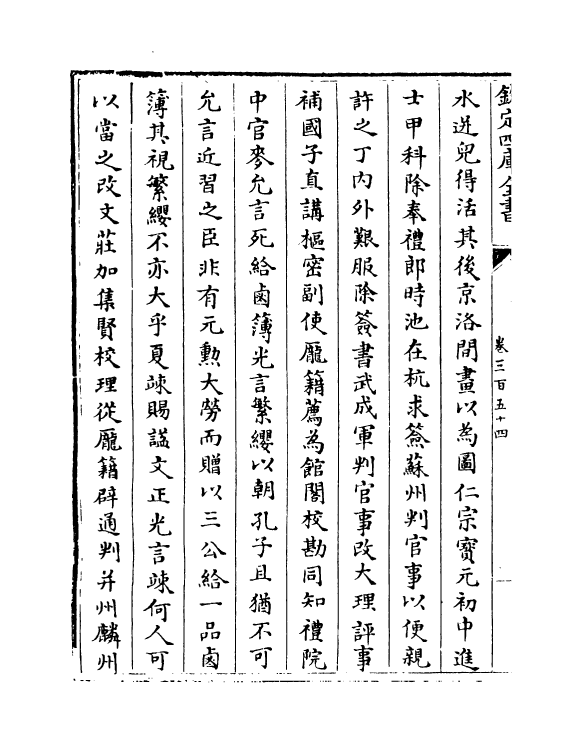 欽定四庫全書
卷三百五十四
水迸兒得活其後京洛間畫以為圖仁宗寳元初中進
士甲科除奉禮郎時池在杭求簽蘇州判官事以便親
許之丁内外艱服除簽書武成軍判官事改大理評事
補國子直講樞密副使龎籍薦為館閣校勘同知禮院
中官麥允言死給鹵簿光言繁纓以朝孔子且猶不可
允言近習之臣非有元勲大勞而贈以三公給一品鹵
簿其視繁纓不亦大乎夏竦賜諡文正光言竦何人可
以當之改文莊加集賢校理從龎籍辟通判并州麟州